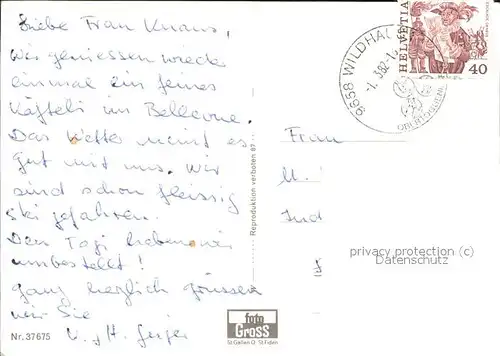 Liebe Frau Knaus,
Wir geniessen wieder
einmal ein feines
Käfteli im Bellevue.
Das Wetter meint es
gut mit uns. Wir
sind schon fleissig
Ski gefahren.
Den Tagi haben wir
umbestellt!
ganz herzlich grüssen
wir Sie
Nr. 37675
Reproduktion verboten 87
foto
Gross
St.Gallen O St.Fiden
9658 WILDHAU
-1.-3.82-1
OBERTOGGENBURG
HELVETIA
40
Frau
privacy protection (c)
Datenschutz